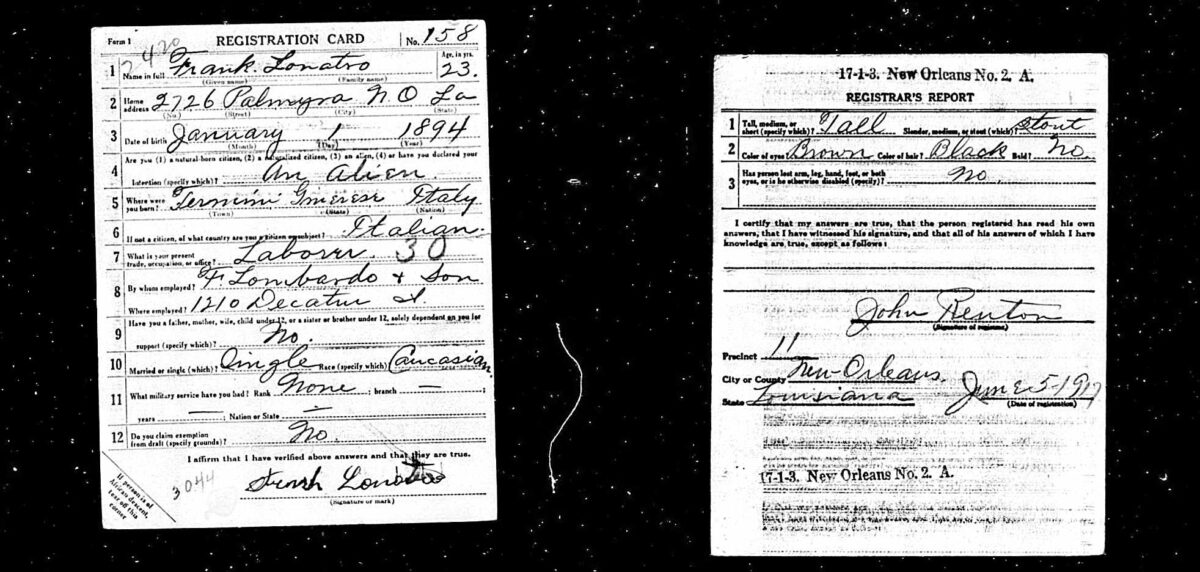 Form 1 REGISTRATION CARD No. 158
2420
1 Name in full Frank Lonatro Age, in yrs. 23.
(Given name) (Family name)
2 Home address 2726 Palmyra N. O La
(No.) (Street) (City) (State)
3 Date of birth January 1 1894
(Month) (Day) (Year)
4 Are you (1) a natural-born citizen, (2) a naturalized citizen, (3) an alien, (4) or have you declared your
intention (specify which)? An Alien.
5 Where were you born? Termini Imerese Italy
(Town) (State) (Nation)
6 If not a citizen, of what country are you a citizen or subject? Italian.
7 What is your present trade, occupation, or office? Laborer 30
8 By whom employed? F. Lombardo + Son
Where employed? 1210 Decatur St.
9 Have you a father, mother, wife, child under 12, or a sister or brother under 12, solely dependent on you for
support (specify which)? No.
10 Married or single (which)? Single Race (specify which)? Caucasian
11 What military service have you had? Rank None ; branch — ;
years — Nation or State —
12 Do you claim exemption from draft (specify grounds)? No.
I affirm that I have verified above answers and that they are true.
3044
Frank Lonatro
(Signature or mark)
If person is of
African descent,
tear off this
corner
17-1-3. New Orleans No. 2. A.
REGISTRAR'S REPORT
1 Tall, medium, or short (specify which)? Tall Slender, medium, or stout (which)? Stout
2 Color of eyes? Brown Color of hair? Black Bald? No.
3 Has person lost arm, leg, hand, foot, or both
eyes, or is he otherwise disabled (specify)? No.
I certify that my answers are true, that the person registered has read his own
answers, that I have witnessed his signature, and that all of his answers of which I have
knowledge are true, except as follows:
John Renton
(Signature of registrar)
Precinct 11
City or County New Orleans.
State Louisiana June 5-1917
(Date of registration)
17-1-3. New Orleans No. 2. A.